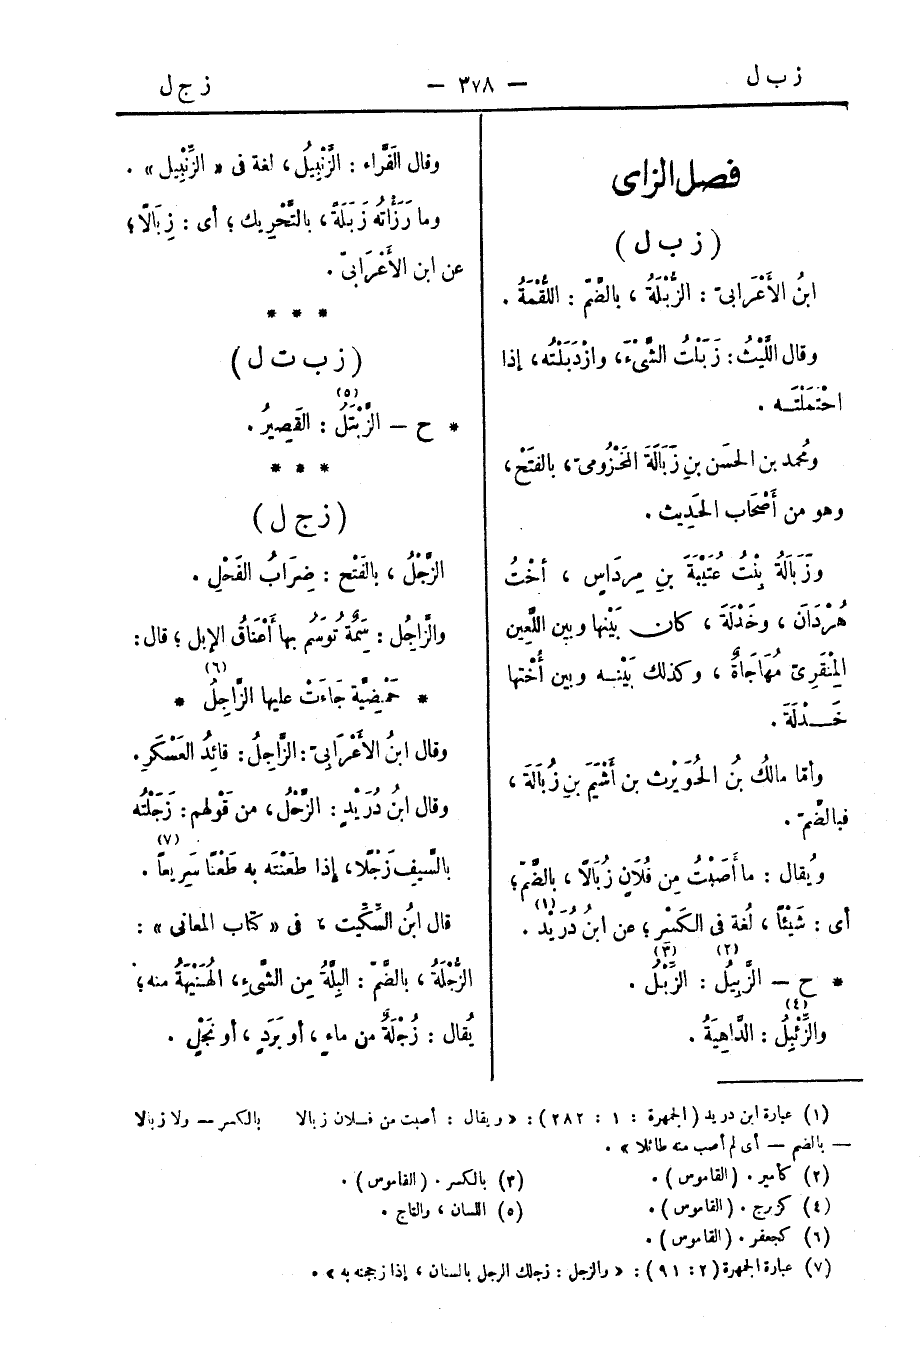 ز ب ل
— ٣٧٨ —
ز ج ل
فصل الزاى
( ز ب ل )
ابنُ الأَعْرَابىّ : الزُّبْلَةُ ، بالضَّمّ : اللُّقْمَةُ .
وقال اللَّيْثُ : زَبَلْتُ الشَّىْءَ، وازْدَبَلْتُه، إذا
احْتَمَلْتَــه .
ومُحمد بن الحسَن بنِ زَبَالَةَ المَخْزُومىّ، بالفَتْح،
وهو من أَصْحَاب الحَدِيث .
وزَبَالَةُ بِنْتُ عُتَيْبَةَ بنِ مِرْدَاسٍ ، أختُ
هُرْدَانَ ، وخَدْلَةَ ، كان بَيْنها وبين اللَّعِين
المِنْقَرِىّ مُهَاجَاةٌ ، وكذلك بَيْنــه وبين أُخْتها
خَــدْلَةَ .
وأمّا مالكُ بنُ الحُوَيْرِث بن أَشْيَمَ بنِ زُبَالَةَ ،
فبالضَّمّ .
ويُقال : ما أَصَبْتُ مِن فُلَانٍ زُبَالًا ، بالضَّمّ؛
أى : شَيْئًا ، لُغة فى الكَسْرِ ؛ عن ابنُ دُرَيْد (١) .
* ح — الزَّبِيلُ (٢) : الزِّبْلُ (٣) .
والزِّئْبِلُ (٤) : الدَّاهِيَةُ .
وقال الفَرَّاء : الزَّنْبِيلُ، لغة فى « الزِّنْبِيل » .
وما رَزَأْتُه زَبَلَةً ، بالتَّحْرِيك ؛ أى : زِبَالًا؛
عن ابن الأَعْرَابىّ .
* * *
( ز ب ت ل )
* ح — الزَّبْتَلُ (٥) : القَصِيرُ .
* * *
( ز ج ل )
الزَّجْلُ ، بالفَتْح : ضِرَابُ الفَحْلِ .
والزَّاجَلُ : سِمَةٌ تُوسَمُ بها أَعْنَاقُ الإبل ؛ قال :
* حَمْضِيَّة جَاءَتْ عليها الزَّاجَلُ (٦) *
وقال ابنُ الأَعْرَابِىّ : الزَّاجِلُ : قائدُ العَسْكَرِ.
وقال ابنُ دُرَيْدٍ : الزَّجْلُ، من قَوْلهم: زَجَلْتُه
بالسَّيفِ زَجْلًا، إذا طَعَنْتَه به طَعْنًا سَرِيعًا (٧) .
قال ابنُ السِّكِّيت ، فى « كتاب المعانى » :
الزُّجْلَةُ ، بالضَّمّ : البِلَّةُ مِن الشَّىءِ، الهُنَيْهَةُ منه؛
يُقال : زُجْلَةٌ من ماءٍ ، أو بَرَدٍ ، أو نَجْلٍ .
(١) عبارة ابن دريد (الجمهرة : ١ : ٢٨٢) : « ويقال : أصبت من فلان زبالا بالكسر — ولا زبالا
— بالضم — أى لم أصب منه طائلا » .
(٢) كأمير . (القاموس) .
(٣) بالكسر . (القاموس) .
(٤) كزبرج . (القاموس) .
(٥) اللسان ، والتاج .
(٦) كجعفر . (القاموس) .
(٧) عبارة الجمهرة (٢ : ٩١) : « والزجل : زجلك الرجل بالسنان ، إذا زججته به » .